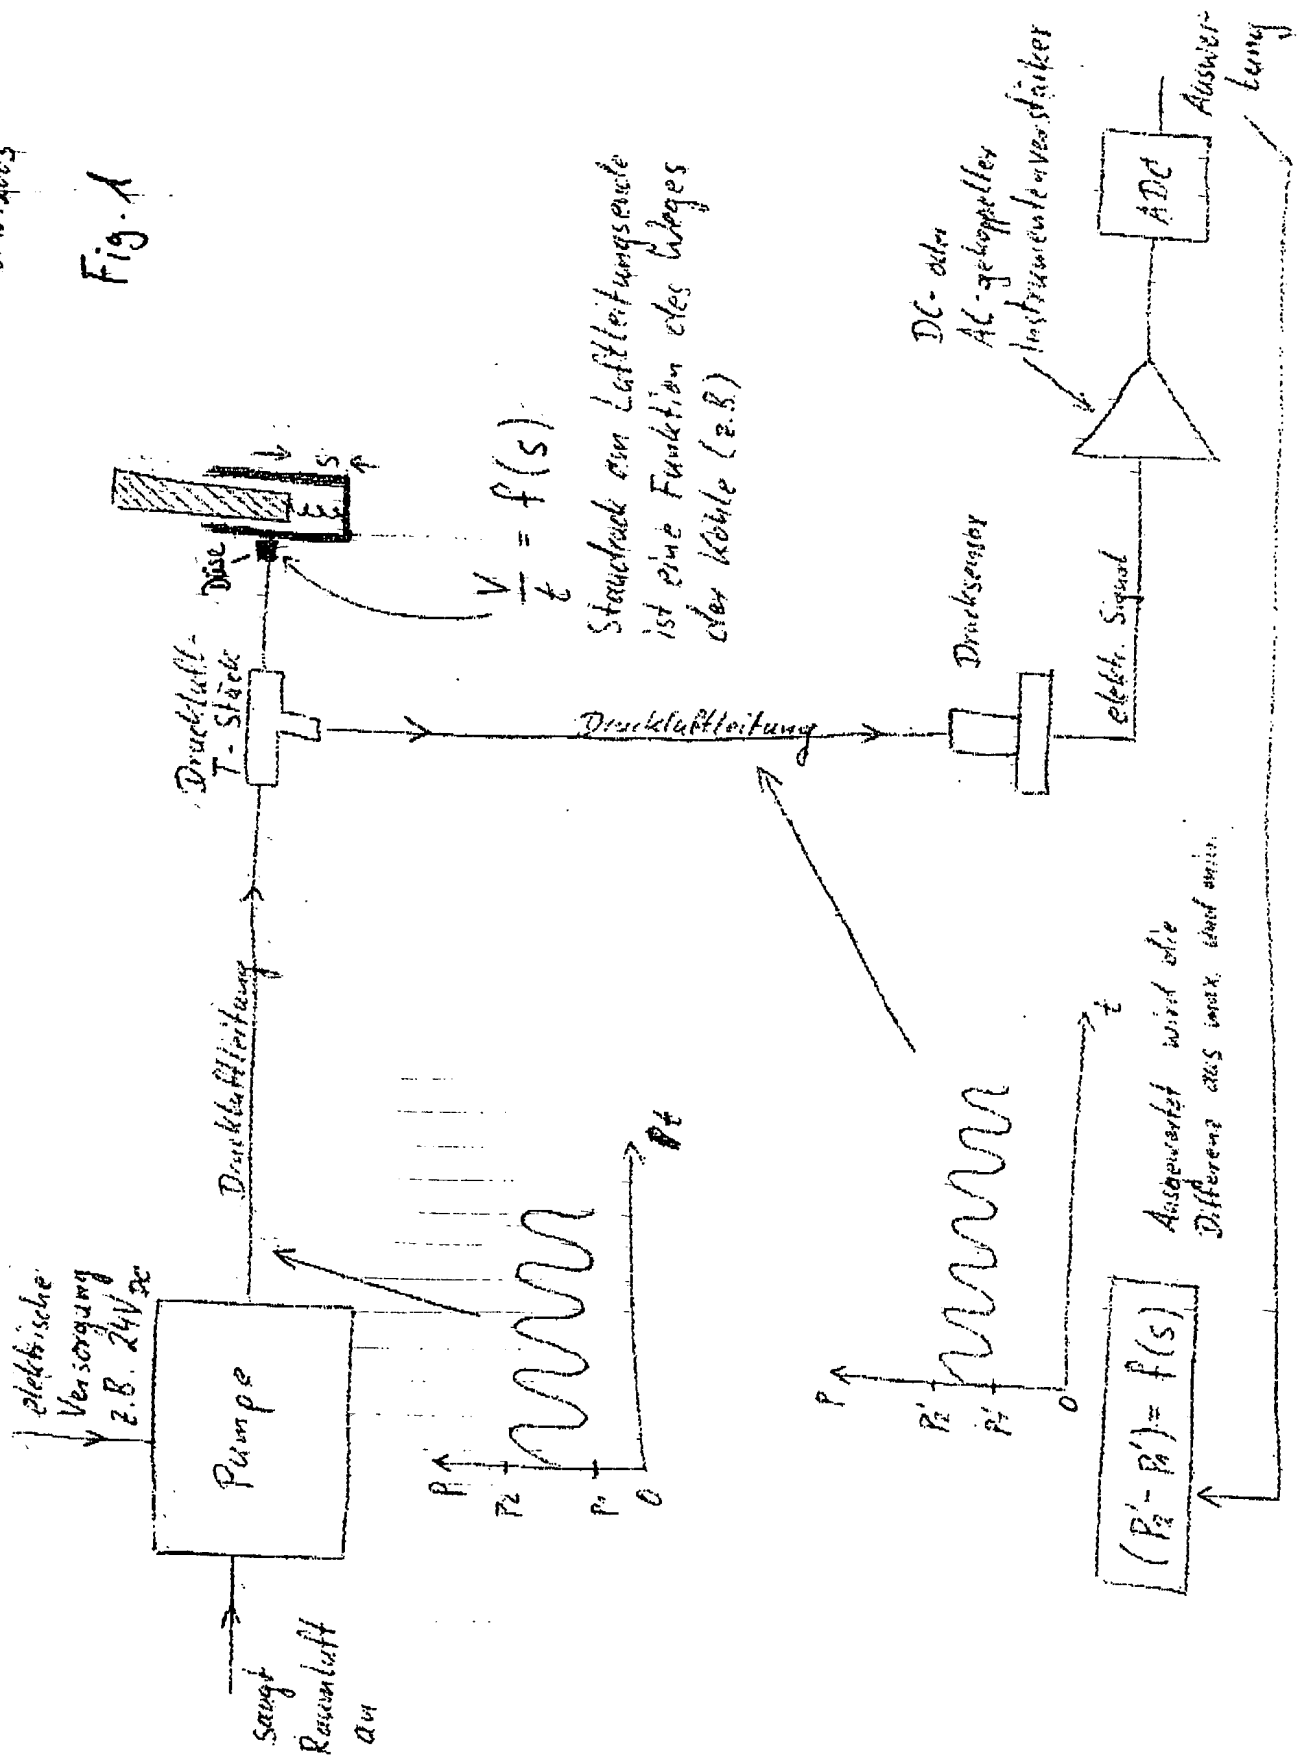 Fig. 1
elektrische
Versorgung
z.B. 24V DC
saugt
Raumluft
an
Pumpe
Druckluftleitung
Druckluft-
T-Stück
Düse
s
V/t = f(s)
Staudruck am Luftleitungsende
ist eine Funktion des Weges
der Kohle (z.B.)
P
P2
P1
0
t
Druckluftleitung
Drucksensor
elektr. Signal
DC- oder
AC-gekoppelter
Instrumentenverstärker
ADC
Auswer-
tung
P
P2'
P1'
0
t
(P2' - P1') = f(s)
Ausgewertet wird die
Differenz aus max. und min.